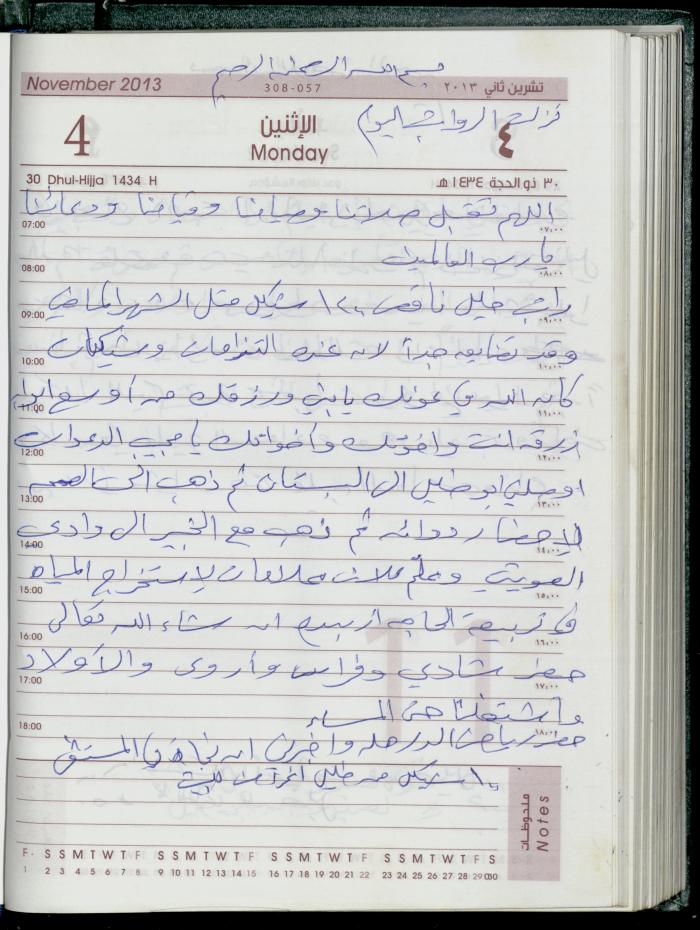 بسم الله الرحمن الرحيم
November 2013
308-057
تشرين ثاني ٢٠١٣
نزلت الرواتب اليوم
4
الإثنين
٤
Monday
30 Dhul-Hijja 1434 H
٣٠ ذو الحجة ١٤٣٤هـ
اللهم تقبل صلاتنا وصيامنا وقيامنا ودعائنا
07:00 ٠٧:٠٠
يا رب العالمين
08:00 ٠٨:٠٠
راتب خليل ناقص ١٢٠٠ شيكل مثل الشهر الماضي
09:00 ٠٩:٠٠
وقد تضايق جداً لانه عنده التزامات وشيكات
10:00 ١٠:٠٠
كان الله في عونك يا بني ورزقك من أوسع ابوابه
11:00 ١١:٠٠
ارزقه انت واخوتك وأخواتك يا مجيب الدعوات
12:00 ١٢:٠٠
اوصلني ابو خليل الى البستان ثم ذهب الى
13:00 ١٣:٠٠
لإحضار دوائه ثم ذهب مع الخبير الى وادي
14:00 ١٤:٠٠
وعلّم ثلاث علامات لإستخراج المياه
15:00 ١٥:٠٠
في الحاجه ان شاء الله تعالى
16:00 ١٦:٠٠
حضر شادي وفراس وأروى والأولاد
17:00 ١٧:٠٠
واشتغلنا حتى المساء
18:00 ١٨:٠٠
حضر واخبرني ان في المستشفى
شيكل من خليل
ملحوظات
Notes
F S S M T W T F S S M T W T F S S M T W T F S S M T W T F S
1 2 3 4 5 6 7 8 9 10 11 12 13 14 15 16 17 18 19 20 21 22 23 24 25 26 27 28 29 30